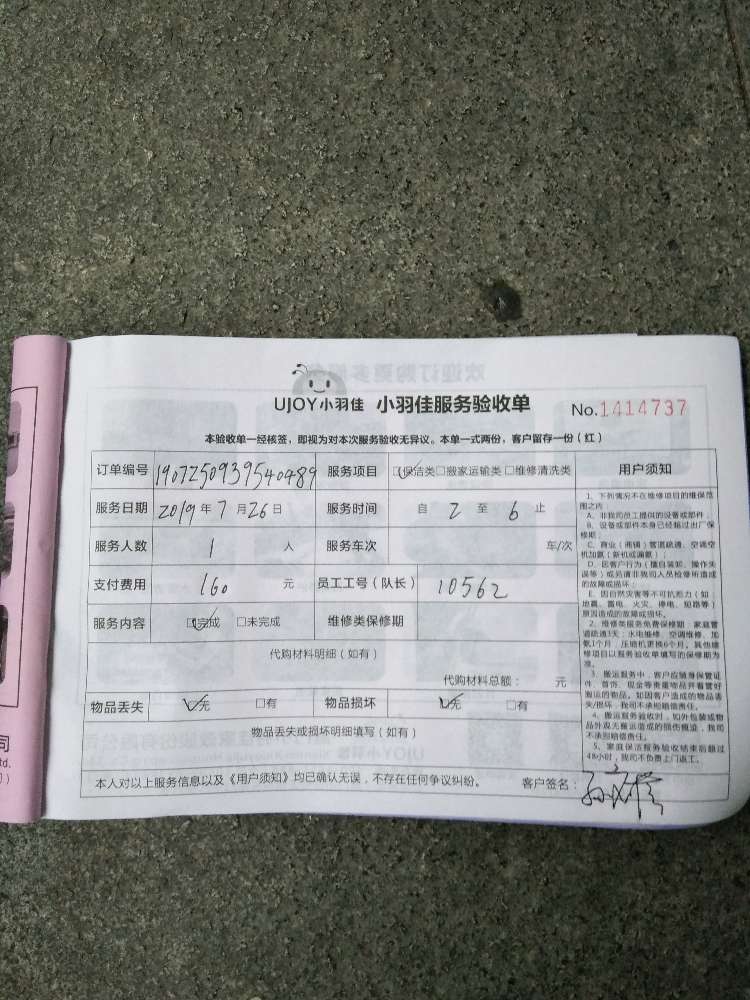 UJOY小羽佳 小羽佳服务验收单 No.1414737
本验收单一经核签，即视为对本次服务验收无异议。本单一式两份，客户留存一份（红）
订单编号 1907250939540489 服务项目 ☑保洁类□搬家运输类□维修清洗类 用户须知
服务日期 2019年7月26日 服务时间 自 2 至 6 止
服务人数 1 人 服务车次 车/次
支付费用 160 元 员工工号（队长） 10562
服务内容 ☑完成 □未完成 维修类保修期
代购材料明细（如有）
代购材料总额： 元
物品丢失 ☑无 □有 物品损坏 ☑无 □有
物品丢失或损坏明细填写（如有）
本人对以上服务信息以及《用户须知》均已确认无误，不存在任何争议纠纷。 客户签名：
1、下列情况不在维修项目的维保范
围之内
A、非我司员工提供的设备或部件；
B、设备或部件本身已经超过出厂保
修期；
C、商业（商铺）管道疏通、空调空
机加氨（新机或漏氨）；
D、因客户行为（擅自装卸、操作失
误等）或另请非我司人员检修所造成
的故障或损坏；
E、因自然灾害等不可抗拒力（如：
地震、雷电、火灾、停电、短路等）
原因造成的故障或损坏。
2、维修类服务免费保修期：家庭管
道疏通3天；水电维修、空调维修、加
氨1个月；压缩机更换6个月。其他维
修项目以服务验收单填写的保修期为
准。
3、搬运服务中，客户应随身保管证
件、首饰、现金等贵重物品并看管好
搬运的物品。如因客户造成的物品丢
失/损坏，我司不承担赔偿责任。
4、搬运服务验收时，如外包装或物
品外观无搬运造成的损伤痕迹，我司
不承担赔偿责任。
5、家庭保洁服务验收结束后超过
48小时，我司不负责上门返工。
司
td.